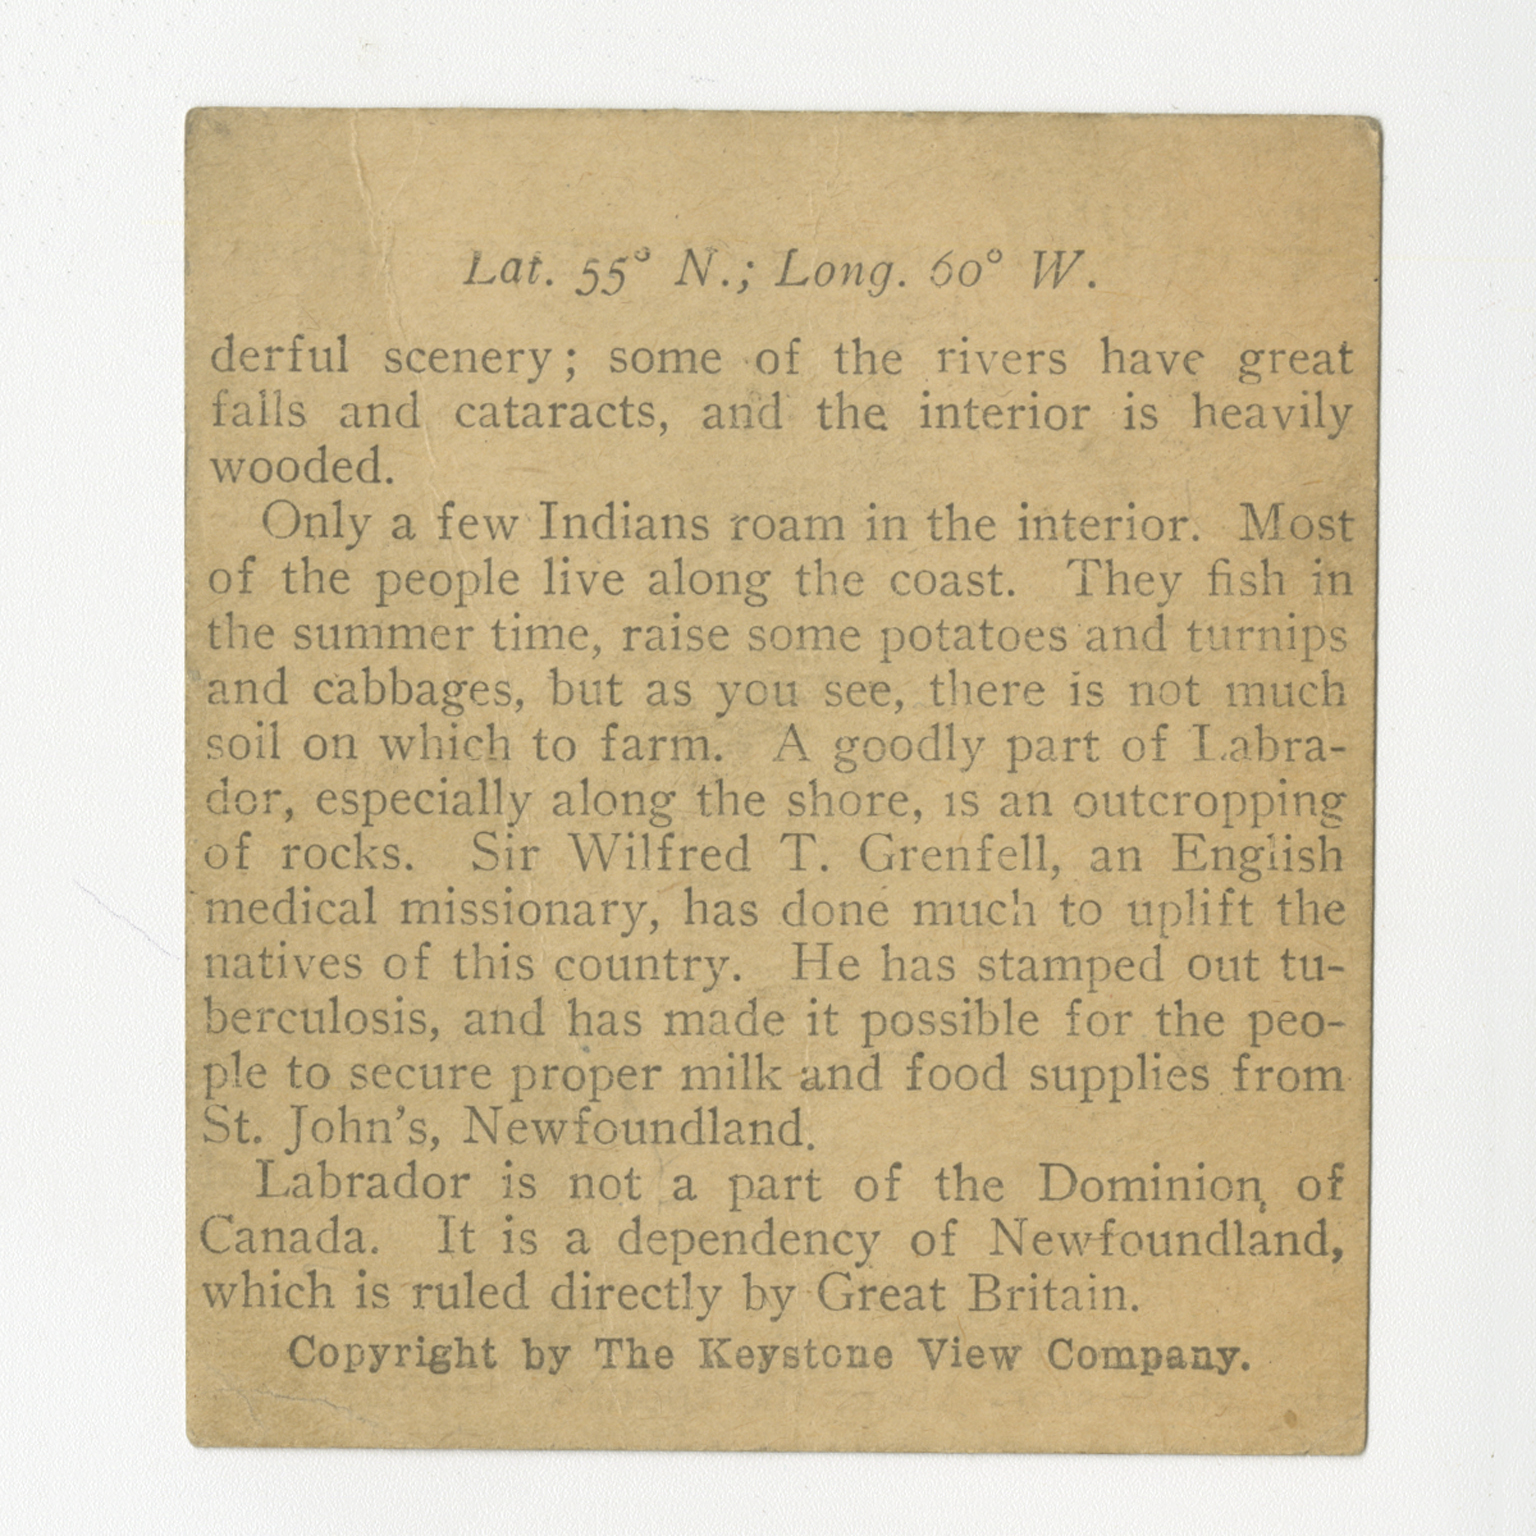 Lat. 55° N.; Long. 60° W.
derful scenery; some of the rivers have great
falls and cataracts, and the interior is heavily
wooded.
Only a few Indians roam in the interior. Most
of the people live along the coast. They fish in
the summer time, raise some potatoes and turnips
and cabbages, but as you see, there is not much
soil on which to farm. A goodly part of Labra-
dor, especially along the shore, is an outcropping
of rocks. Sir Wilfred T. Grenfell, an English
medical missionary, has done much to uplift the
natives of this country. He has stamped out tu-
berculosis, and has made it possible for the peo-
ple to secure proper milk and food supplies from
St. John's, Newfoundland.
Labrador is not a part of the Dominion of
Canada. It is a dependency of Newfoundland,
which is ruled directly by Great Britain.
Copyright by The Keystone View Company.